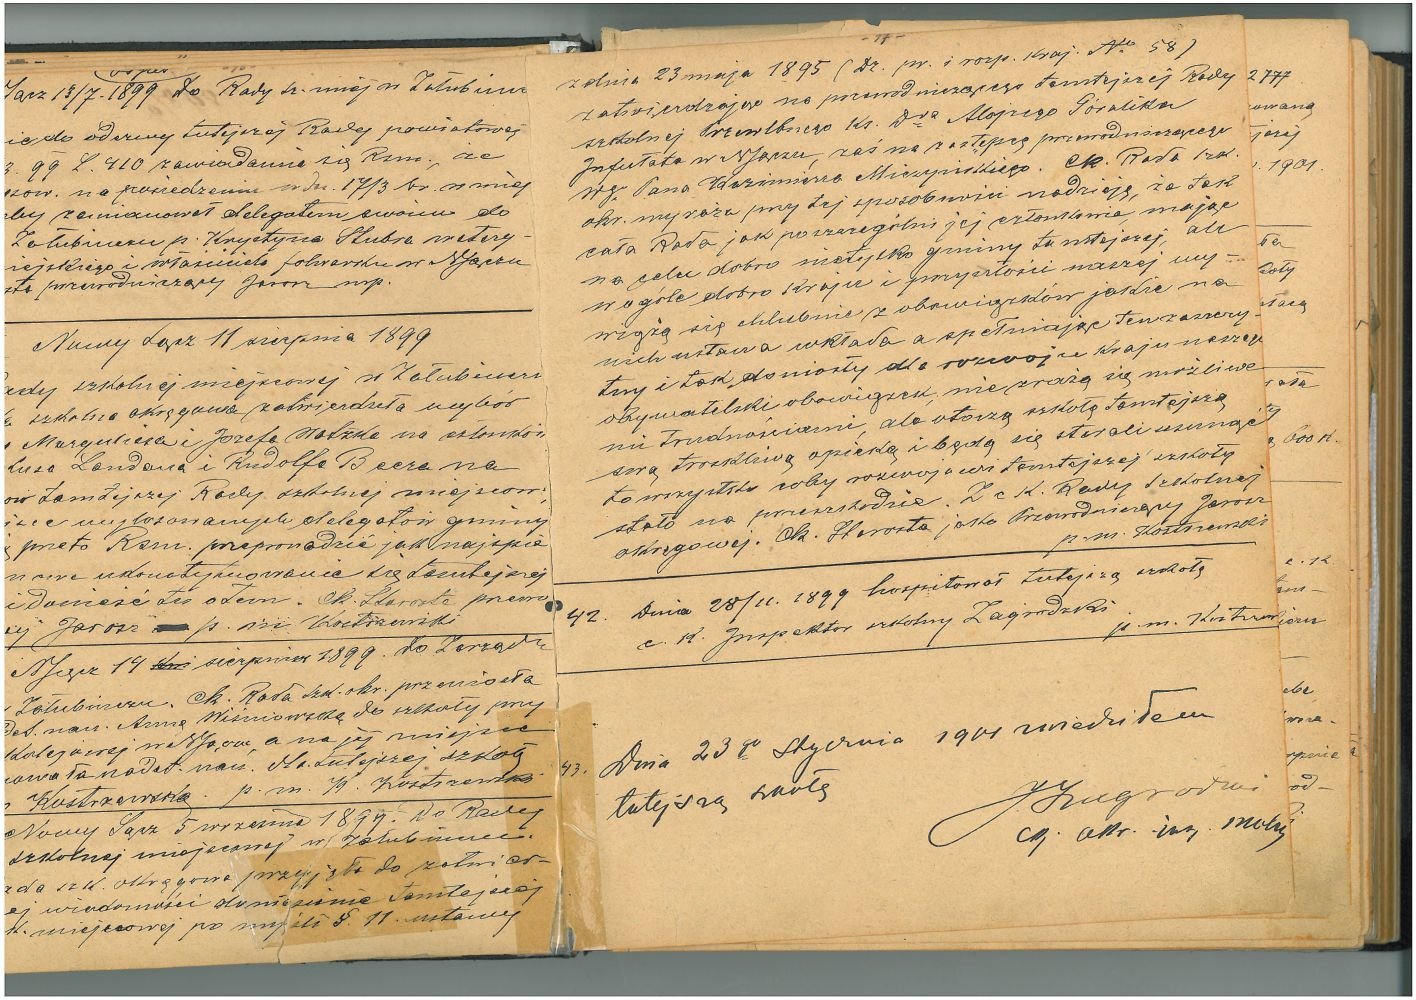 Sącz 13/7. 1899 do Rady sz. miej w Załubinczu
do odezwy tutejszej Rady powiatowej
99 L. 410 zawiadamia się Rsm., że
na posiedzeniu w dn. 17/3 br. w miej
zamianował delegatem swoim do
Załubincza p. Krystyna Stubra wetery-
miejskiego i właściciela folwarku w NSączu
przewodniczący Jarosz mp.
Nowy Sącz 11 sierpnia 1899
Rady szkolnej miejscowej w Załubinczu
szkolna okręgowa zatwierdziła wybór
Marguliesa i Józefa na członków
Landaua i Rudolfa Beera na
tamtejszej Rady szkolnej miejscow.
wylosowanych delegatów gminy
przeto Rsm. przeprowadzić jak najspie
ukonstytuowanie się tamtejszej
i donieść tu o tem. Ck. Starosta przew
Jarosz p. m. Kostrzewski
NSącz 14 sierpnia 1899. do Zarządu
Załubinczu. Ck. Rada szk. okr. przeniosła
nau. Annę Wiśniowską do szkoły przy
w NSączu, a na jej miejsce
nadet. nau. dla tutejszej szkoły
Kostrzewską. p. m. K. Kostrzewski
Nowy Sącz 5 września 1899. Do Rady
szkolnej miejscowej w Załubinczu.
szk. okręgowa przyjęła do zatwier-
wiadomości doniesienie tamtejszej
miejscowej po myśli §. 11. ustawy
-17-
z dnia 23 maja 1895 (Dz. pr. i rozp. kraj. No 58)
zatwierdzając na przewodniczącego tamtejszej Rady
szkolnej Przewlbnego Ks. Dra Alojzego Góralika
Infułata w NSączu, zaś na zastępcę przewodniczącego
Wgo Pana Kazimierza Miczyńskiego. Ck. Rada szk.
okr. wyraża przy tej sposobności nadzieję, że tak
cała Rada jak poszczególni jej członkowie, mając
na celu dobro nietylko gminy tamtejszej, ale
w ogóle dobro kraju i przyszłości naszej wy-
wiążą się chlubnie z obowiązków jakie na
nich ustawa wkłada a spełniając ten zaszczy-
tny i tak doniosły dla rozwoju kraju naszego
obywatelski obowiązek, nie zrażą się możliwe
mi trudnościami, ale otoczą szkołę tamtejszą
swą troskliwą opieką i będą się starali usunąć
to wszystko coby rozwojowi tamtejszej szkoły
stało na przeszkodzie. Z c K. Rady szkolnej
okręgowej. Ck. Starosta jako Przewodniczący Jarosz
p. m. Kostrzewski
42. Dnia 28/11. 1899 hospitował tutejszą szkołę
c. K. Inspektor szkolny Zagrodzki
p. m. Kostrzewski
43. Dnia 23go Stycznia 1901 zwiedziłem
tutejszą szkołę
J Zagrodzki
ck. okr. insp. szkolny
2777
1901.
600 K.